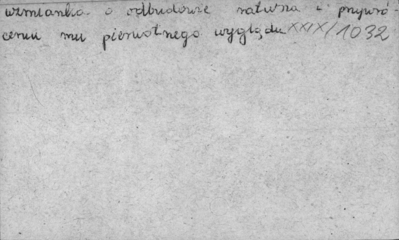 wzmianka o odbudowie ratusza i przywró-
ceniu mu pierwotnego wyglądu XXIX/1032